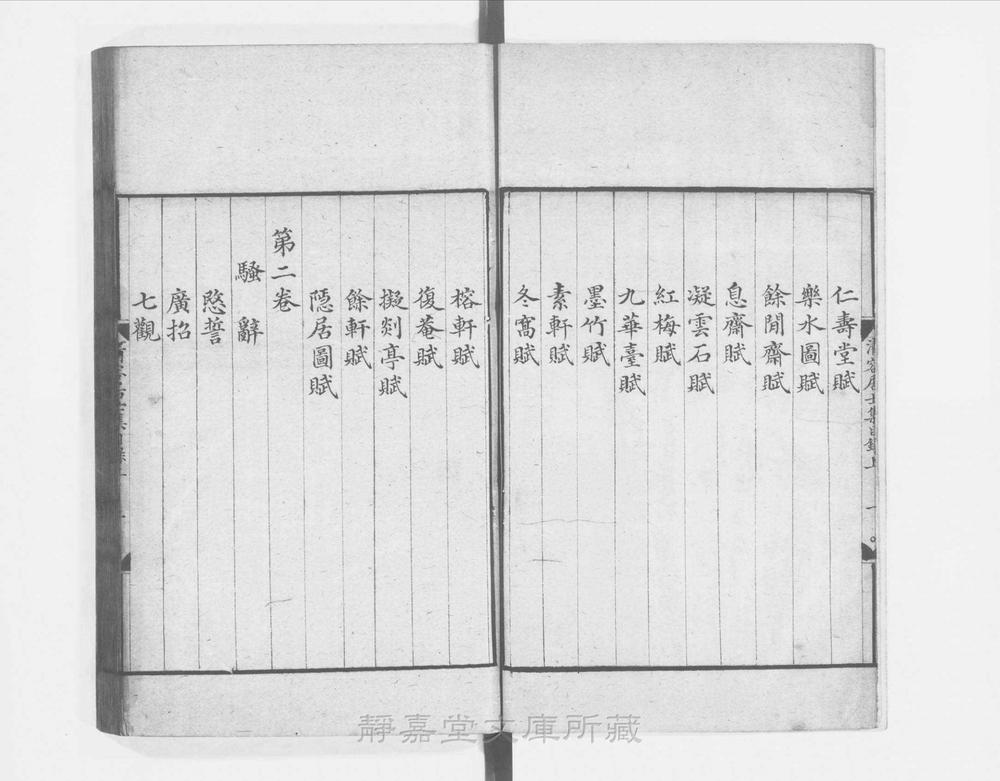 仁壽堂賦
樂水圖賦
餘閒齋賦
息齋賦
凝雲石賦
紅梅賦
九華臺賦
墨竹賦
素軒賦
冬窩賦
清容居士集目錄上
一
榕軒賦
復菴賦
擬剡亭賦
餘軒賦
隱居圖賦
第二卷
騷辭
愍誓
廣招
七觀
靜嘉堂文庫所藏